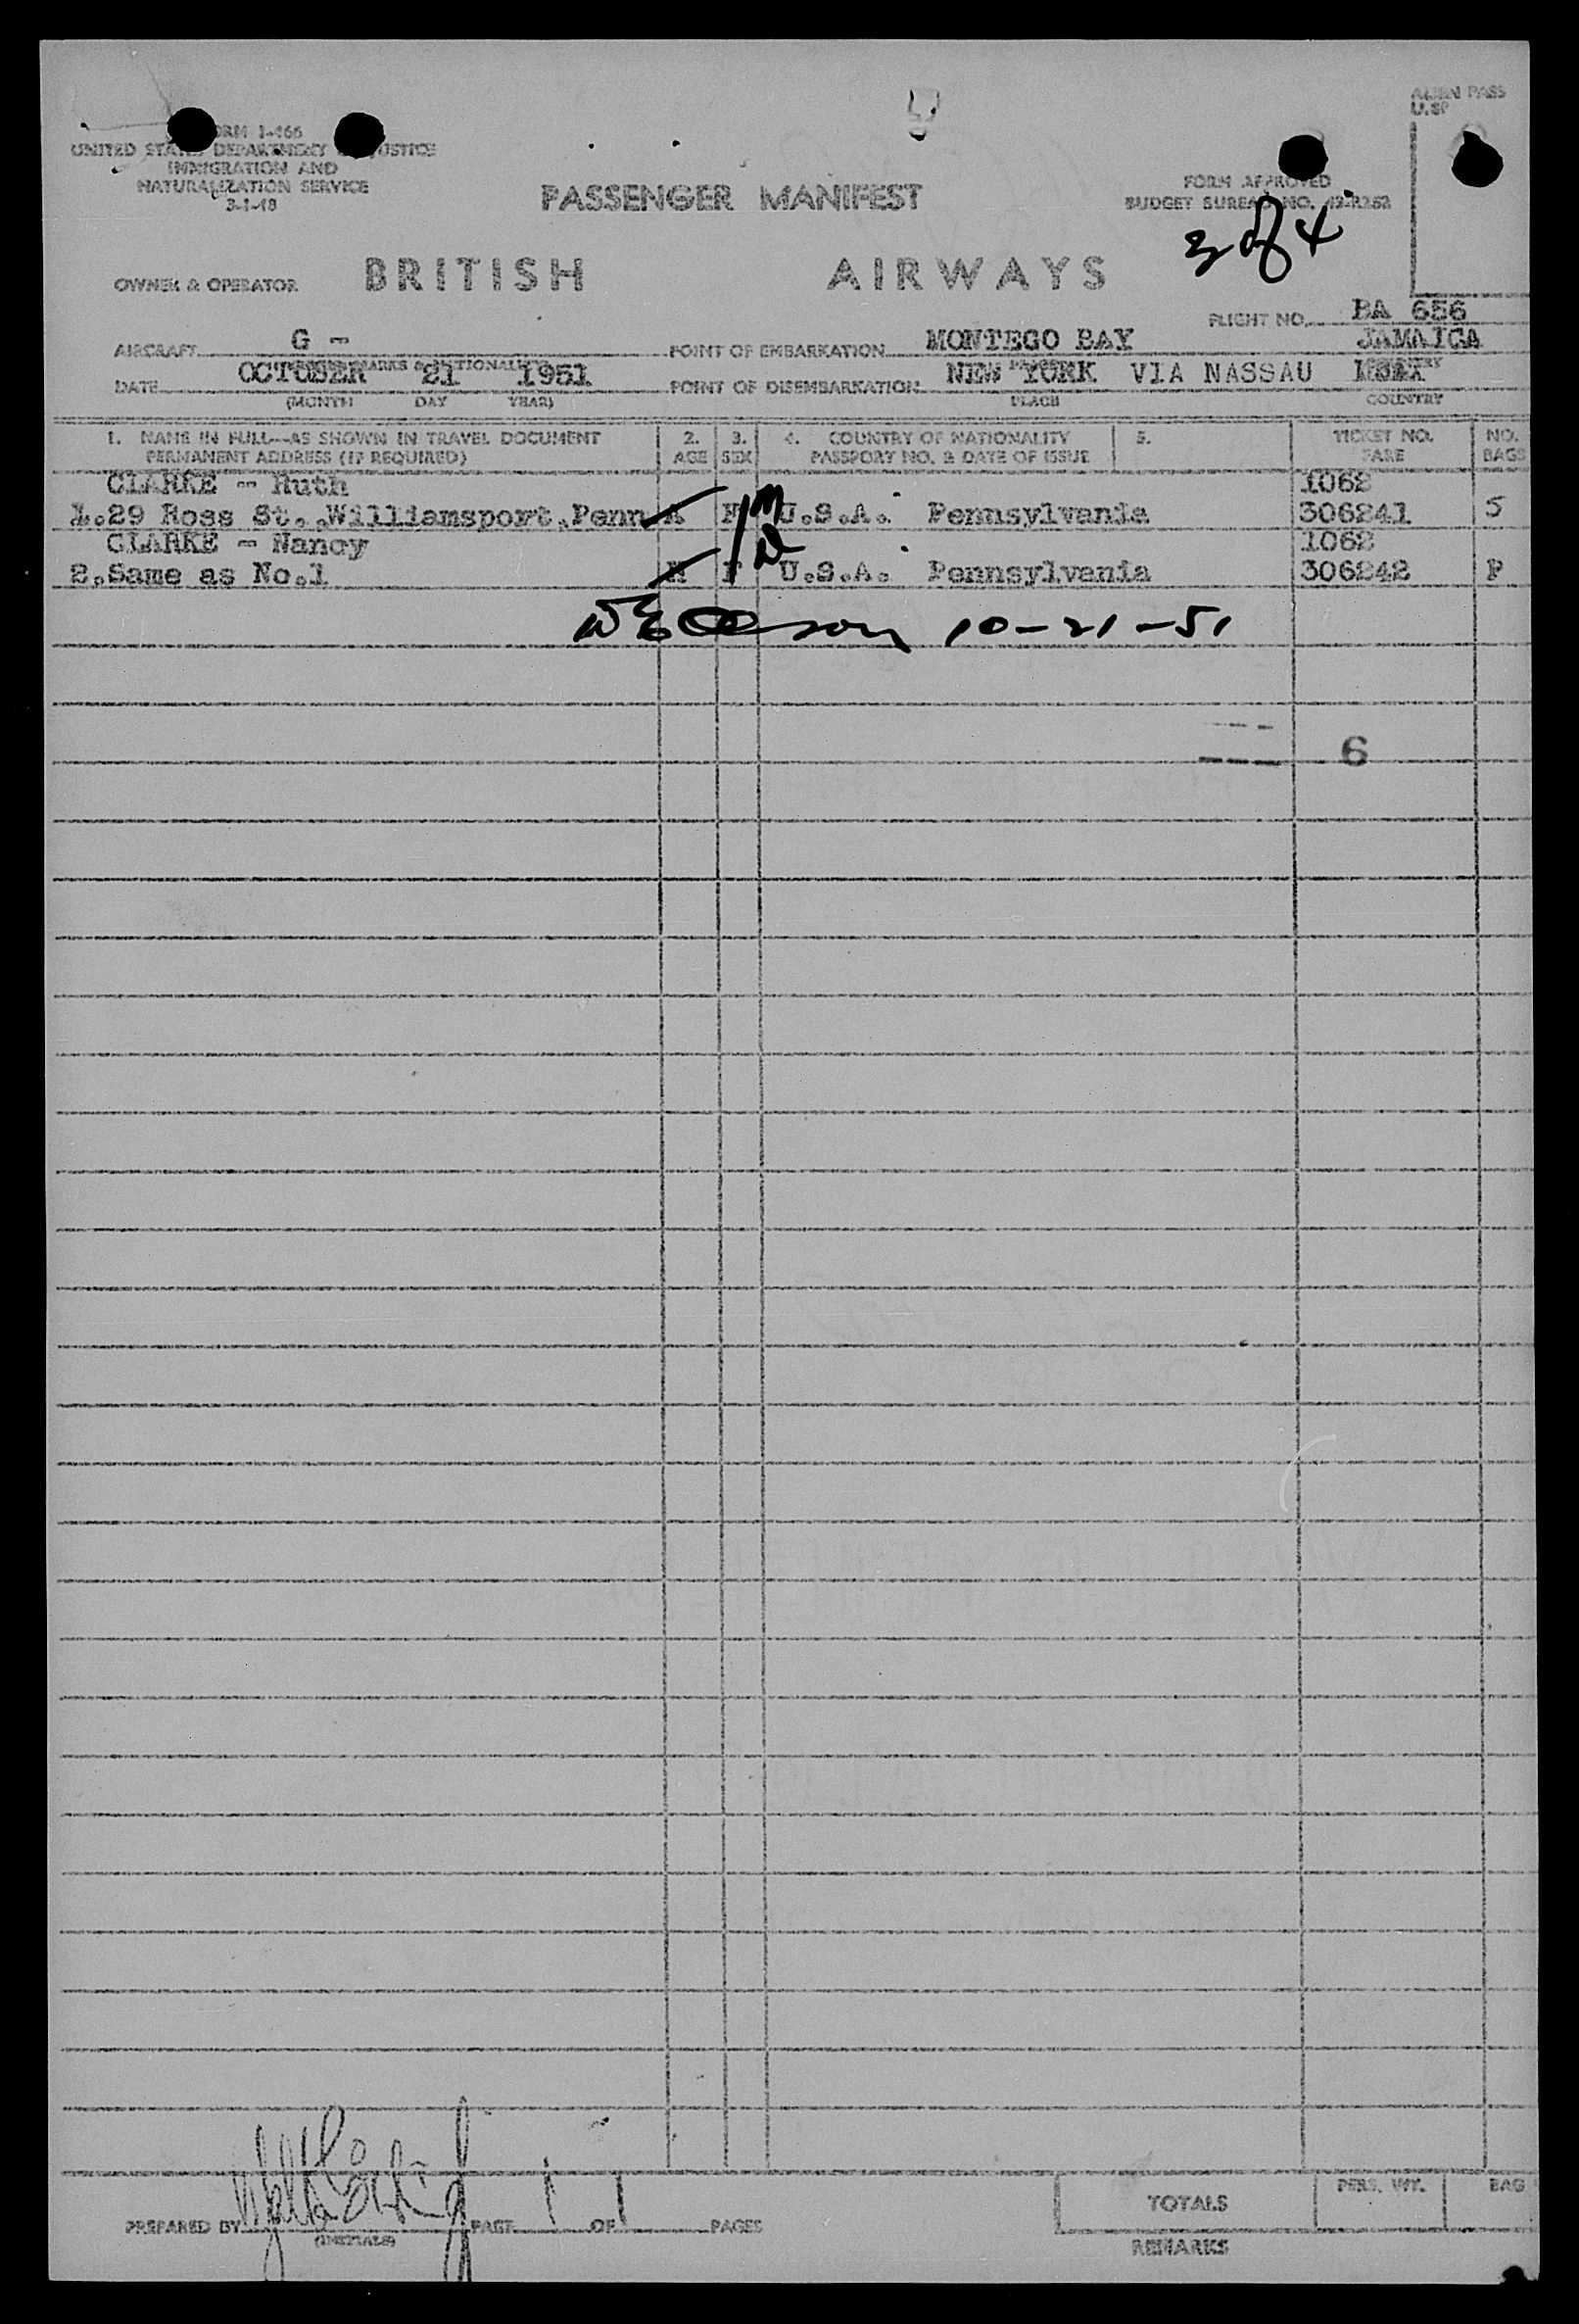 ALIEN PASS
U.S.
FORM I-466
UNITED STATES DEPARTMENT OF JUSTICE
IMMIGRATION AND
NATURALIZATION SERVICE
3-1-48
PASSENGER MANIFEST
FORM APPROVED
BUDGET BUREAU NO.
3 of 4
OWNER & OPERATOR BRITISH AIRWAYS
FLIGHT NO. BA 656
AIRCRAFT G - POINT OF EMBARKATION MONTEGO BAY JAMAICA
DATE OCTOBER 21 1951 POINT OF DISEMBARKATION NEW YORK VIA NASSAU
(MONTH DAY YEAR) PLACE COUNTRY
1. NAME IN FULL--AS SHOWN IN TRAVEL DOCUMENT 2. 3. 4. COUNTRY OF NATIONALITY 5. TICKET NO. NO.
PERMANENT ADDRESS (IF REQUIRED) AGE SEX PASSPORT NO. & DATE OF ISSUE FARE BAGS
CLARKE - Ruth 1062
1.29 Ross St.,Williamsport,Penn A F U.S.A. Pennsylvania 306241 5
CLARKE - Nancy 1062
2.Same as No.1 F U.S.A. Pennsylvania 306242 P
10-21-51
6
PREPARED BY PAGE 1 OF 1 PAGES
(INITIALS)
TOTALS PERS. WT. BAG
REMARKS